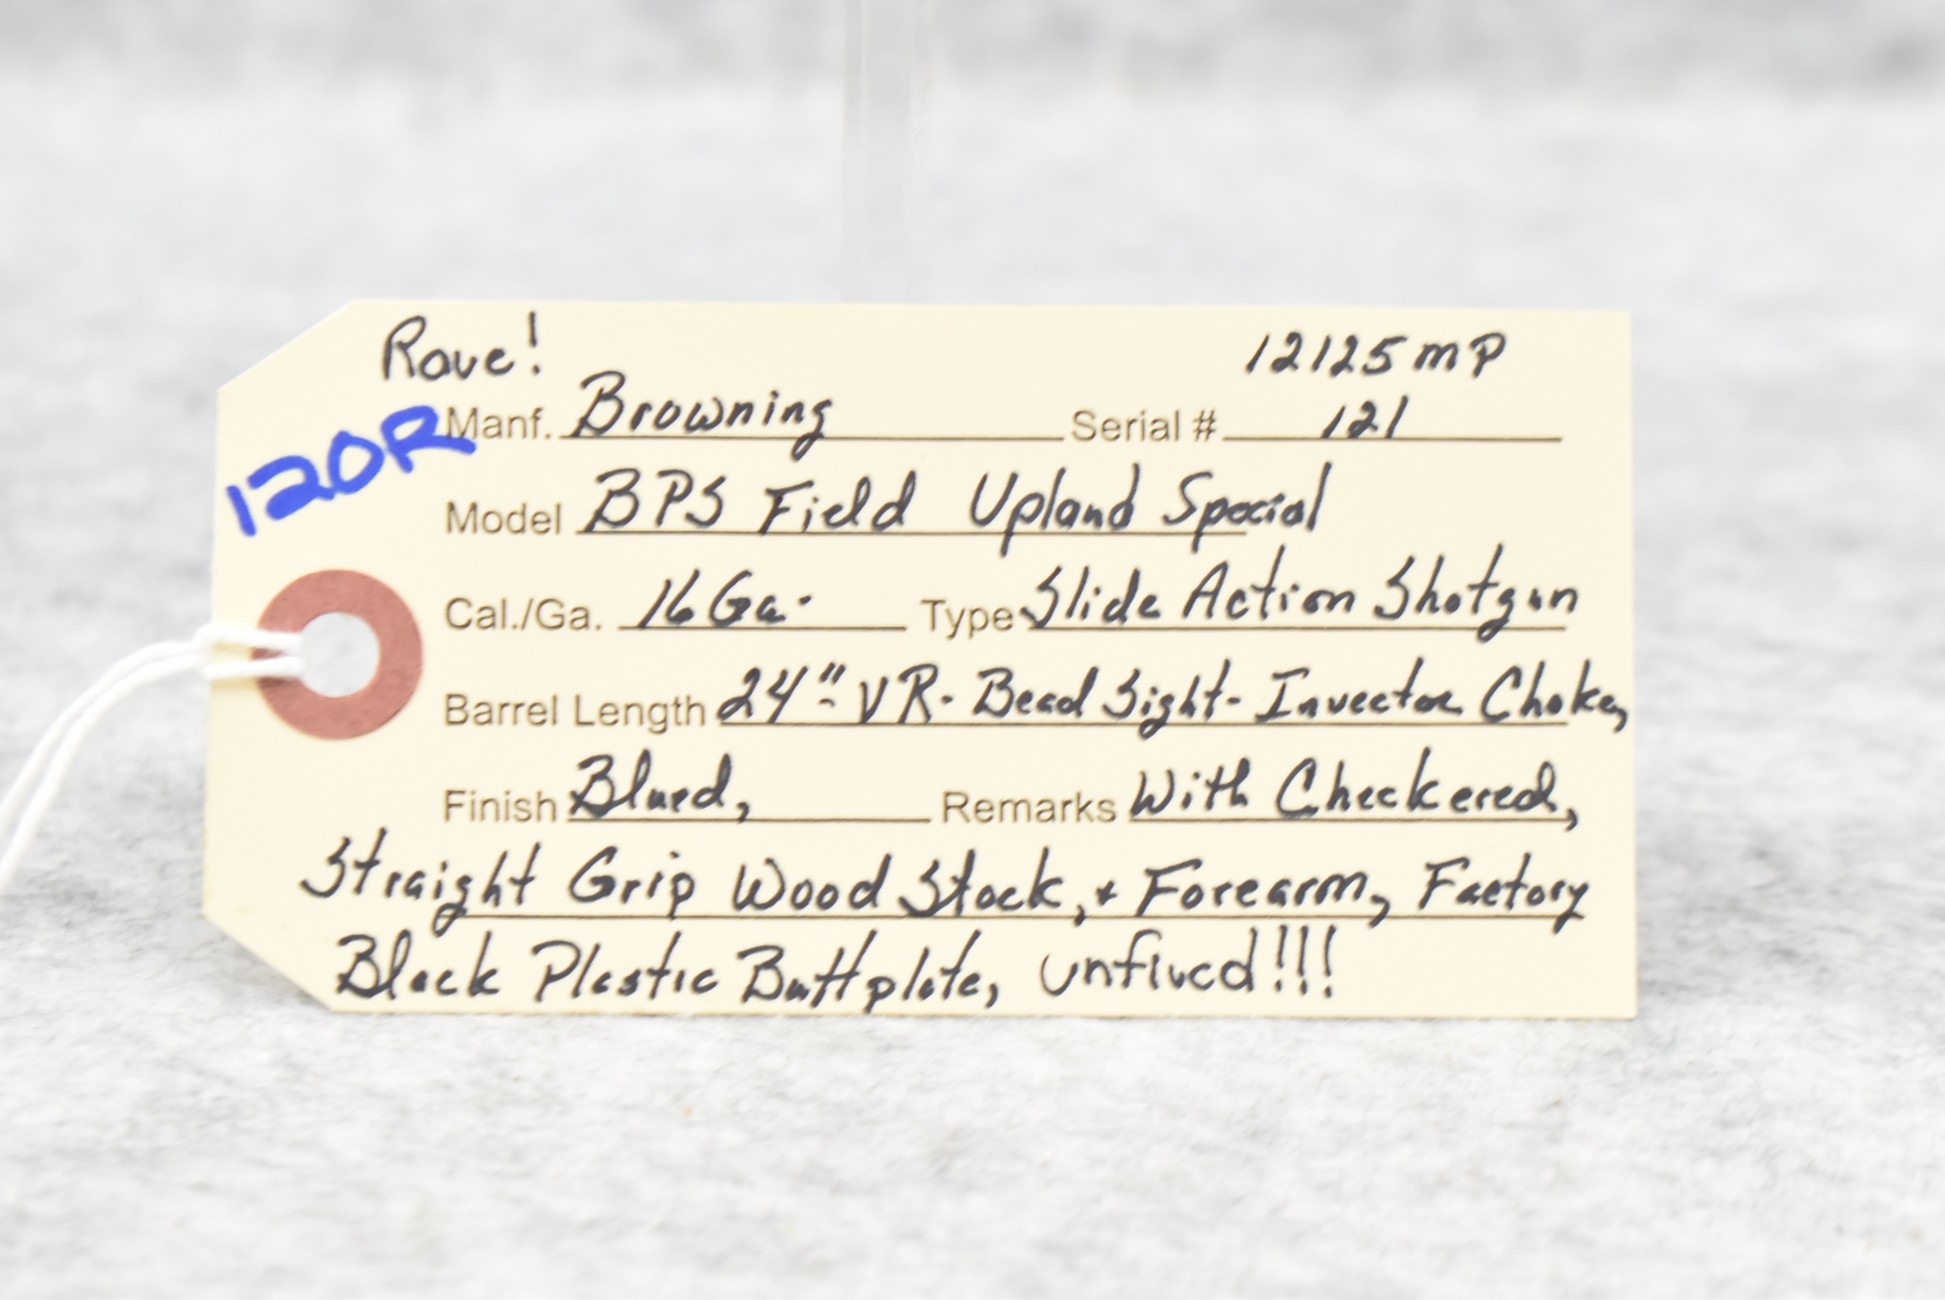 Rare!
12125MP
120R
Manf. Browning Serial # 121
Model BPS Field Upland Special
Cal./Ga. 16 Ga. Type Slide Action Shotgun
Barrel Length 24" VR- Bead Sight- Invector Choke,
Finish Blued, Remarks With Checkered,
Straight Grip Wood Stock, + Forearm, Factory
Black Plastic Buttplate, unfired!!!